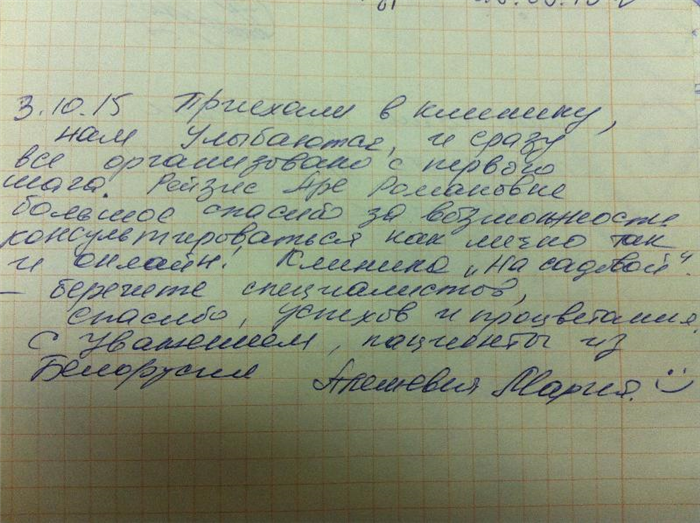 3.10.15 Приехали в клинику,
нам улыбаются, и сразу
все организовано с первого
шага. Рейзис Аре Романовне
большое спасибо за возможность
консультироваться как лично так
и онлайн! Клиника „На садовой“.
– берегите специалистов,
спасибо, успехов и процветания.
С уважением, пациенты из
Белорусии Мария. :)